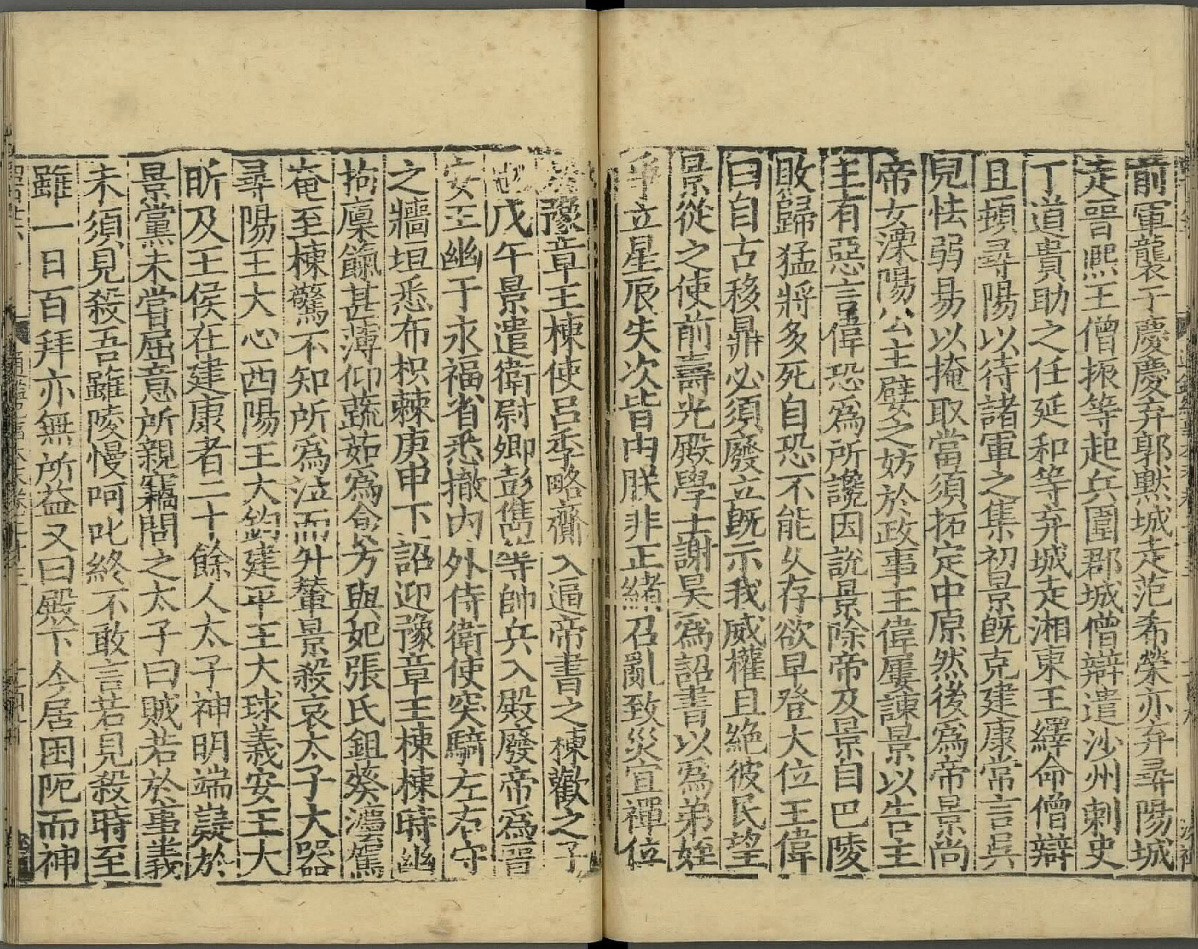 前軍襲于慶慶弃郭黙城走范希榮亦弃尋陽城
走晉熈王僧振等起兵圍郡城僧辯遣沙州刺史
丁道貴助之任延和等弃城走湘東王繹命僧辯
且頓尋陽以待諸軍之集初景旣克建康常言吳
兒怯弱易以掩取當須拓定中原然後爲帝景尚
帝女溧陽公主嬖之妨於政事王偉屢諫景以告主
主有惡言偉恐爲所讒因說景除帝及景自巴陵
敗歸猛將多死自恐不能乆存欲早登大位王偉
曰自古移鼎必須廢立旣示我威權且絶彼民望
景從之使前壽光殿學士謝昊爲詔書以爲弟姪
爭立星辰失次皆由朕非正緒召亂致災宜禪位
豫章王棟使呂季略齎入逼帝書之棟歡之子
戊午景遣衛尉卿彭雋等帥兵入殿廢帝爲晉
安王幽于永福省悉撤内外侍衛使突騎左右守
之牆垣悉布枳棘庚申下詔迎豫章王棟棟時幽
拘廩餼甚薄仰蔬茹爲食方與妃張氏鉏葵灋駕
奄至棟驚不知所爲泣而升輦景殺哀太子大器
尋陽王大心西陽王大鈞建平王大球義安王大
昕及王侯在建康者二十餘人太子神明端嶷於
景黨未嘗屈意所親竊問之太子曰賊若於事義
未須見殺吾雖陵慢呵叱終不敢言若見殺時至
雖一日百拜亦無所益又曰殿下今居困阨而神